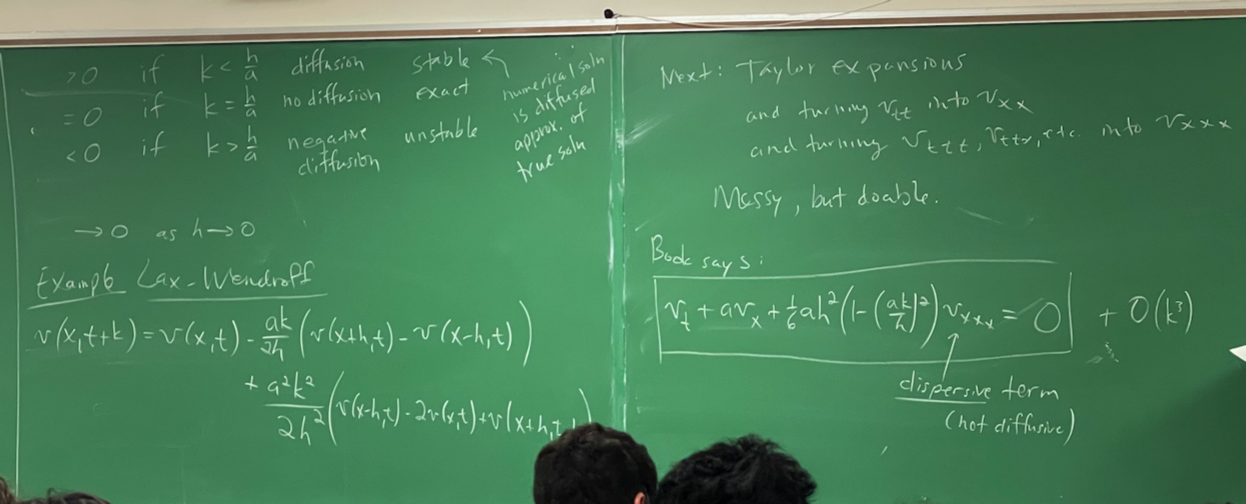 >0 if k < h/a diffusion stable ←
=0 if k = h/a no diffusion exact
<0 if k > h/a negative diffusion unstable
numerical soln
is diffused
approx. of
true soln
→0 as h→0
Example Lax-Wendroff
v(x,t+k) = v(x,t) - ak/2h (v(x+h,t) - v(x-h,t))
+ a²k²/2h² (v(x-h,t) - 2v(x,t) + v(x+h,t))
Next: Taylor expansions
and turning v_tt into v_xx
and turning v_ttt, v_ttx, etc. into v_xxx
Messy, but doable.
Book says:
v_t + av_x + 1/6 ah² (1 - (ak/h)²) v_xxx = 0 + O(k³)
dispersive term
(not diffusive)